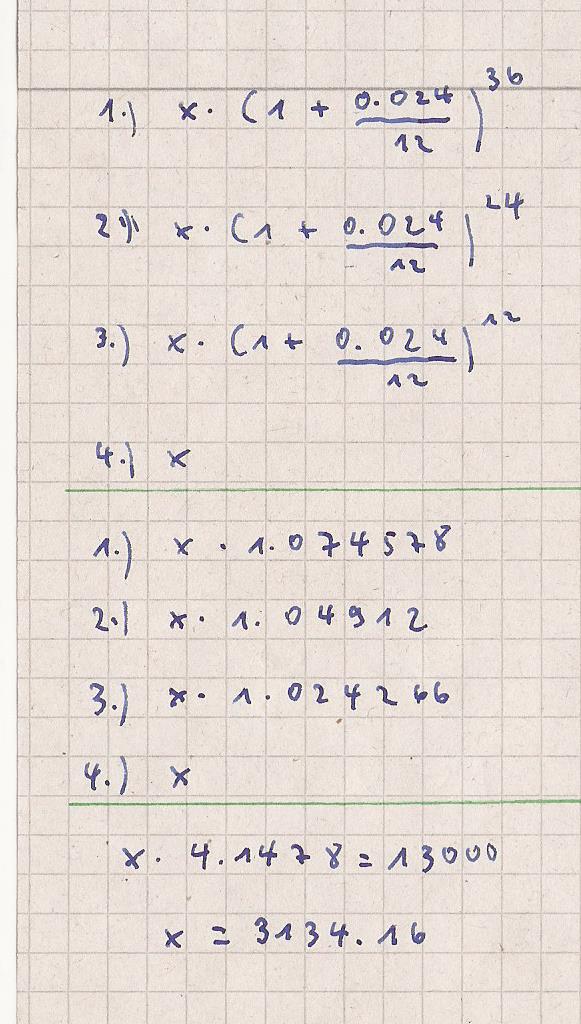 1.) x · (1 + 0.024/12)^36
2.) x · (1 + 0.024/12)^24
3.) x · (1 + 0.024/12)^12
4.) x
1.) x · 1.074578
2.) x · 1.04912
3.) x · 1.024266
4.) x
x · 4.1478 = 13000
x = 3134.16